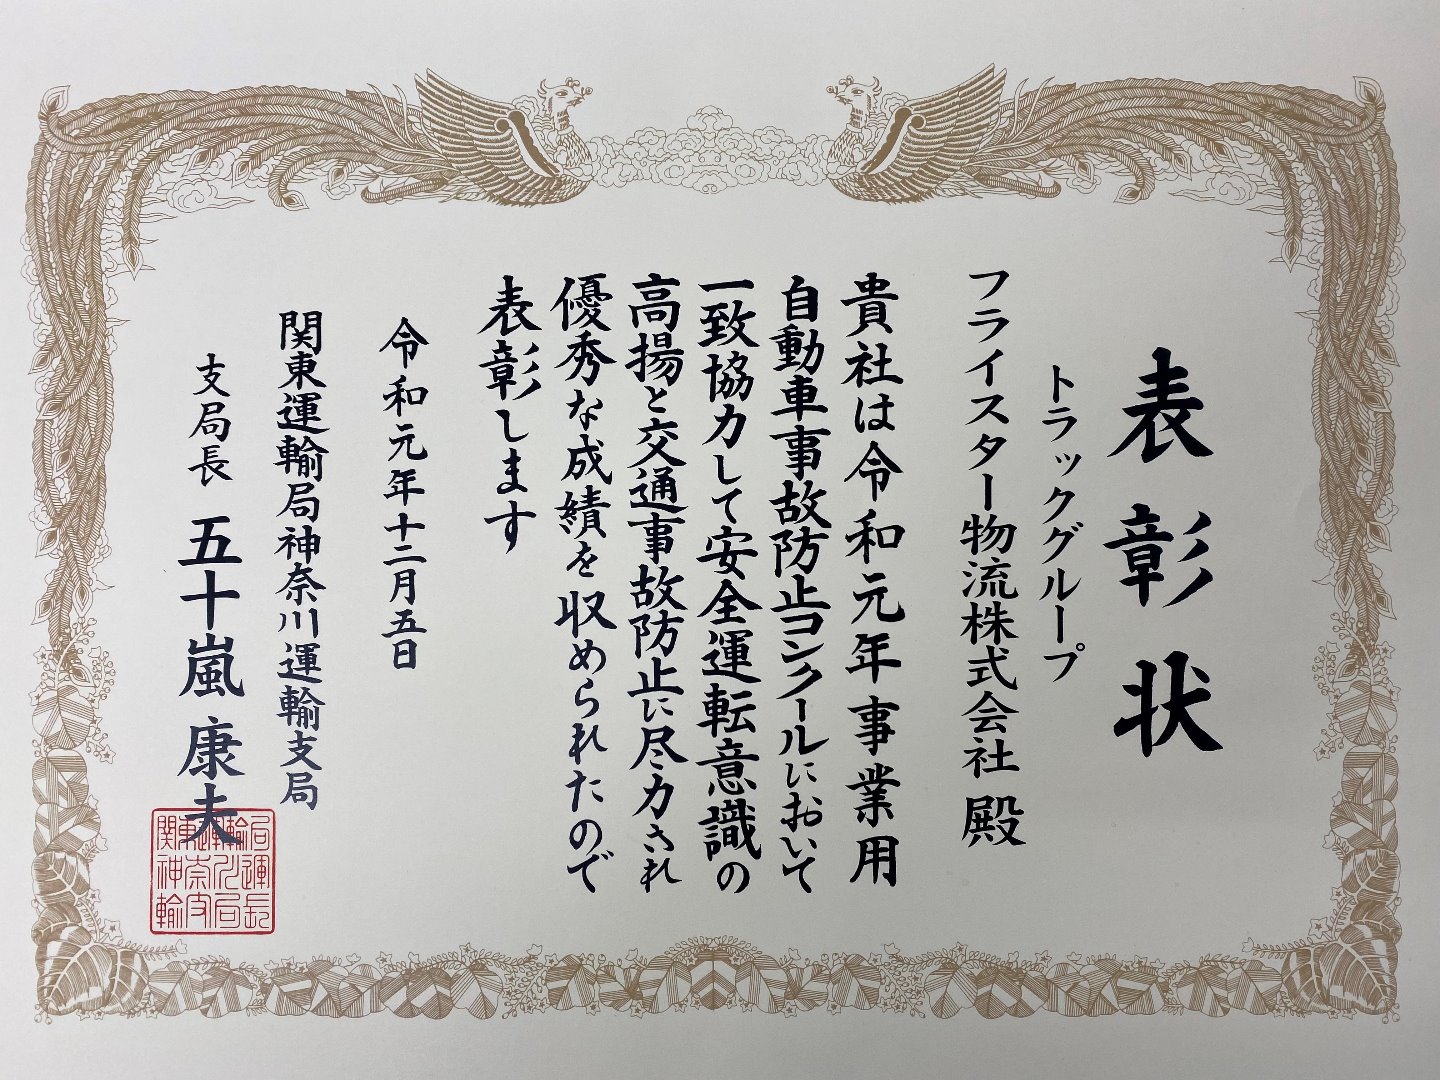 表彰状
トラックグループ
フライスター物流株式会社 殿
貴社は令和元年事業用
自動車事故防止コンクールにおいて
一致協力して安全運転意識の
高揚と交通事故防止に尽力され
優秀な成績を収められたので
表彰します
令和元年十二月五日
関東運輸局神奈川運輸支局
支局長 五十嵐 康夫
関東運輸局
神奈川運
輸支局長